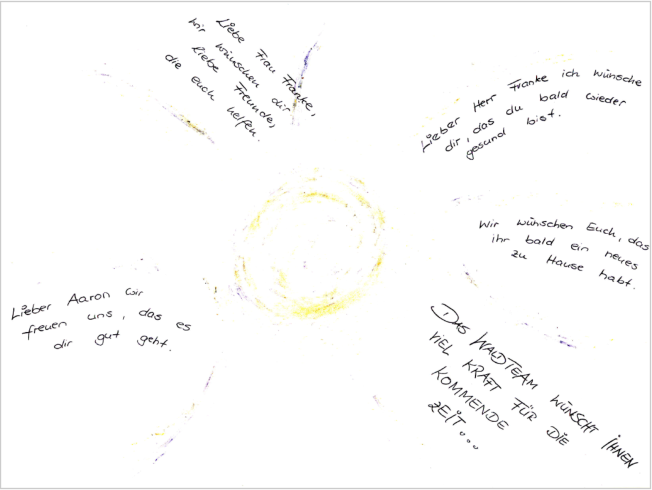 Liebe Frau Franke,
wir wünschen dir
liebe Freunde,
die euch helfen.
Lieber Herr Franke ich wünsche
dir, das du bald wieder
gesund bist.
Wir wünschen Euch, das
ihr bald ein neues
zu Hause habt.
Lieber Aaron wir
freuen uns, das es
dir gut geht.
DAS WALDTEAM WÜNSCHT IHNEN
VIEL KRAFT FÜR DIE
KOMMENDE
ZEIT...